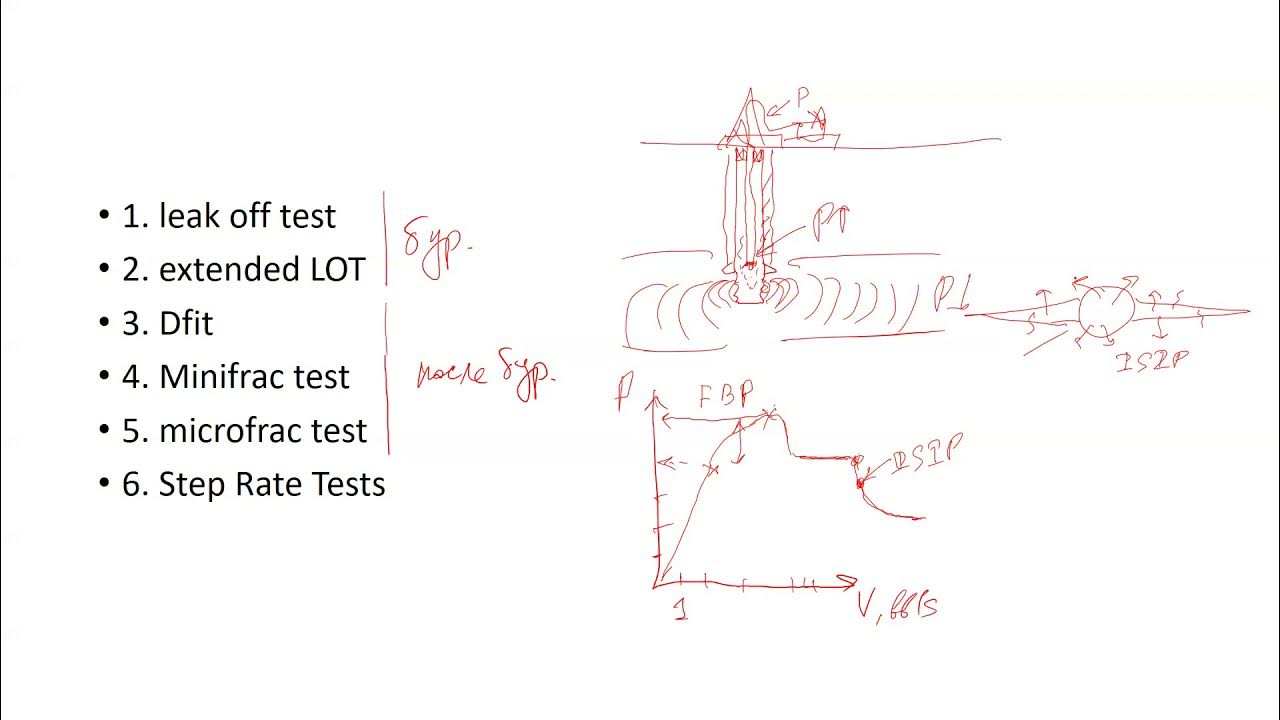 • 1. leak off test
• 2. extended LOT
• 3. Dfit
• 4. Minifrac test
• 5. microfrac test
• 6. Step Rate Tests
бур.
после бур.
P
P↑
P↓
ISIP
P
FBP
ISIP
1
V, bbls